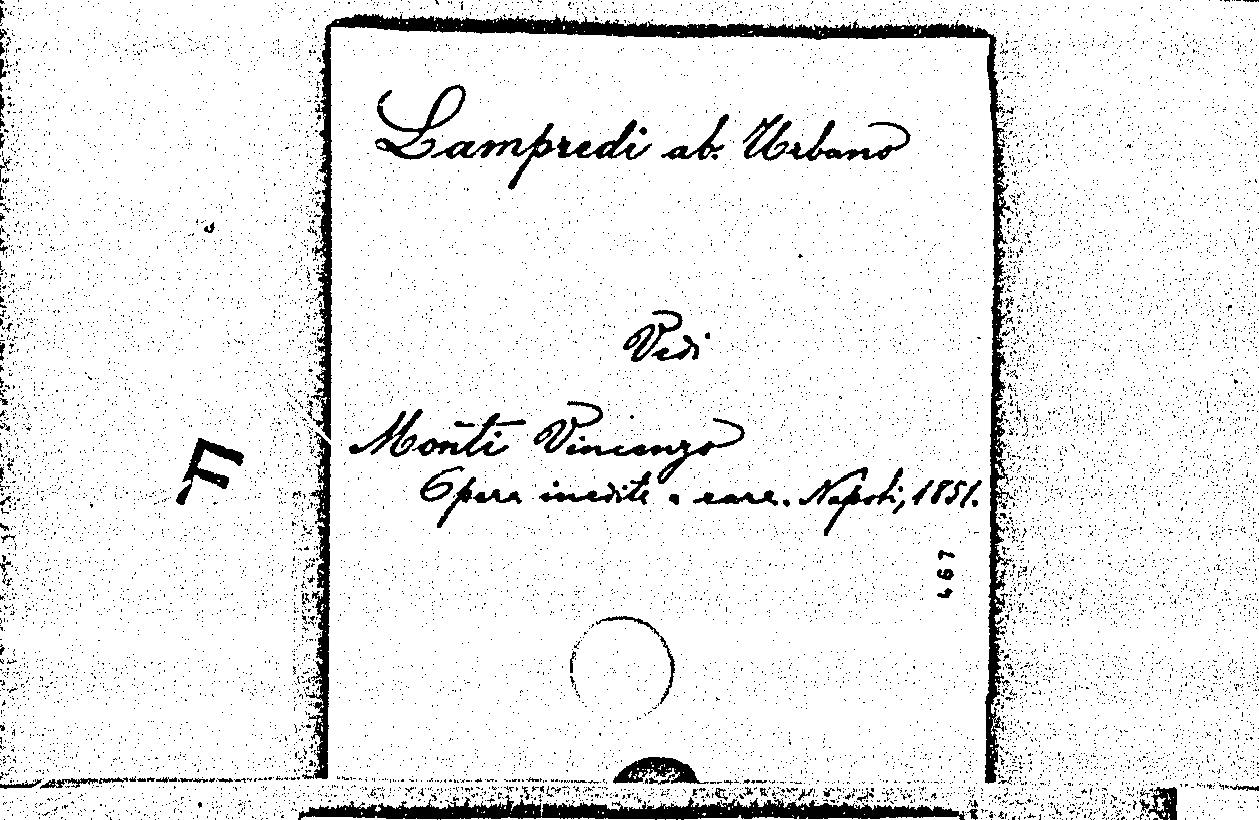 Lampredi ab. Urbano
Vedi
Monti Vincenzo
Opere inedite e rare. Napoli, 1851.
467
F